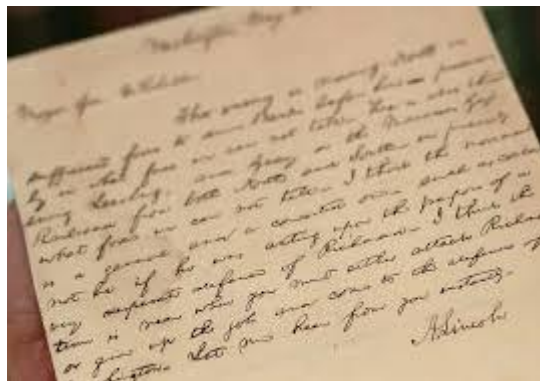 Washington May
Major Gen. McClellan
The enemy is moving North in
sufficient force to drive Banks before him in precise
ly what force we can not tell. He is also threat
ening Leesburg and Geary on the Manassas Gap
Railroad from both North and South in precisely
what force we can not tell. I think the movement
is a general and a concerted one, such as could
not be if he was acting upon the purpose of a
very desperate defence of Richmond. I think the
time is near when you must either attack Richmond
or give up the job and come to the defence of
Let me hear from you instantly.
A. Lincoln